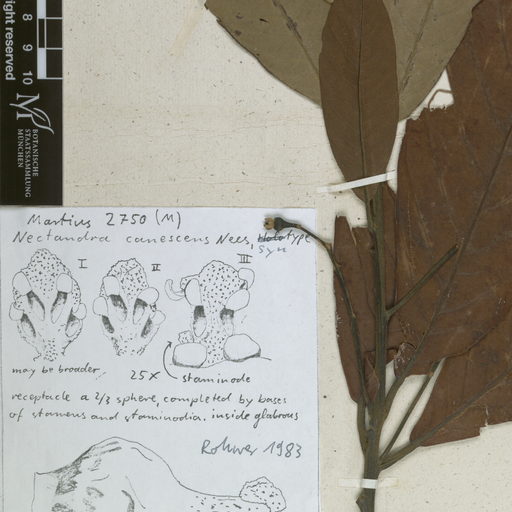 right reserved
8 9 10
BOTANISCHE
STAATSSAMMLUNG
MÜNCHEN
Martius 2750 (M)
Nectandra canescens Nees, Holotype
Syn
I II III
may be broader.
25x staminode
receptacle a 2/3 sphere, completed by bases
of stamens and staminodia. inside glabrous
Rohwer 1983